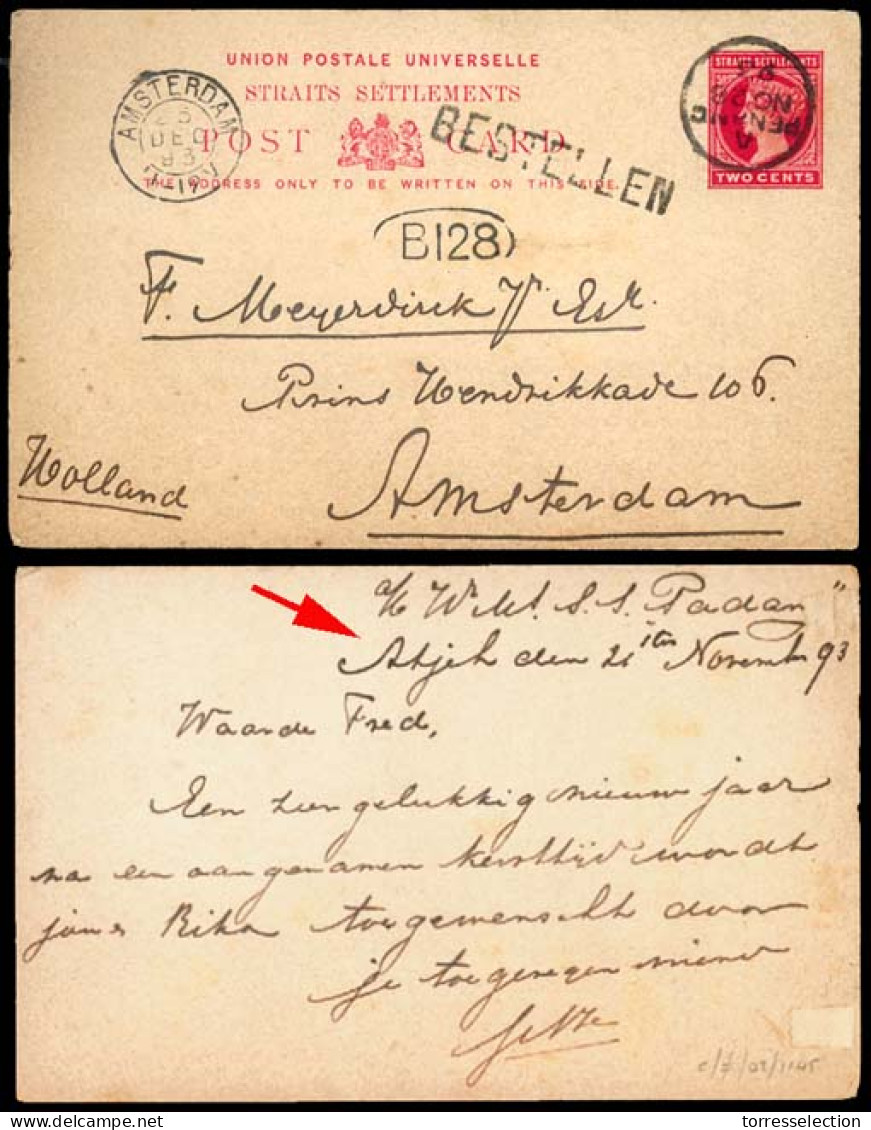 UNION POSTALE UNIVERSELLE
STRAITS SETTLEMENTS
POST CARD
THE ADDRESS ONLY TO BE WRITTEN ON THIS SIDE.
AMSTERDAM
DEC
93
BESTELLEN
STRAITS SETTLEMENTS
TWO CENTS
PENANG
A
NO 28
93
B128
F. Meyerdirck Jr. Esq.
Prins Hendrikkade 106.
Amsterdam
Holland
S.S. Padang"
Atjeh den 21 November 93
Waarde Fred,
Een zeer gelukkig nieuw jaar
na een aangenamen kersttijd wordt
jou & Rika toegewenscht door
je toegenegen
c/£/02/1145
torresselection